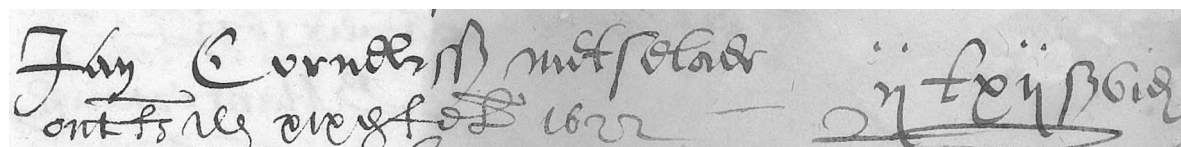 Jan Cornelissz metselaer ij £ xij ß vi d
ontf xix 1622